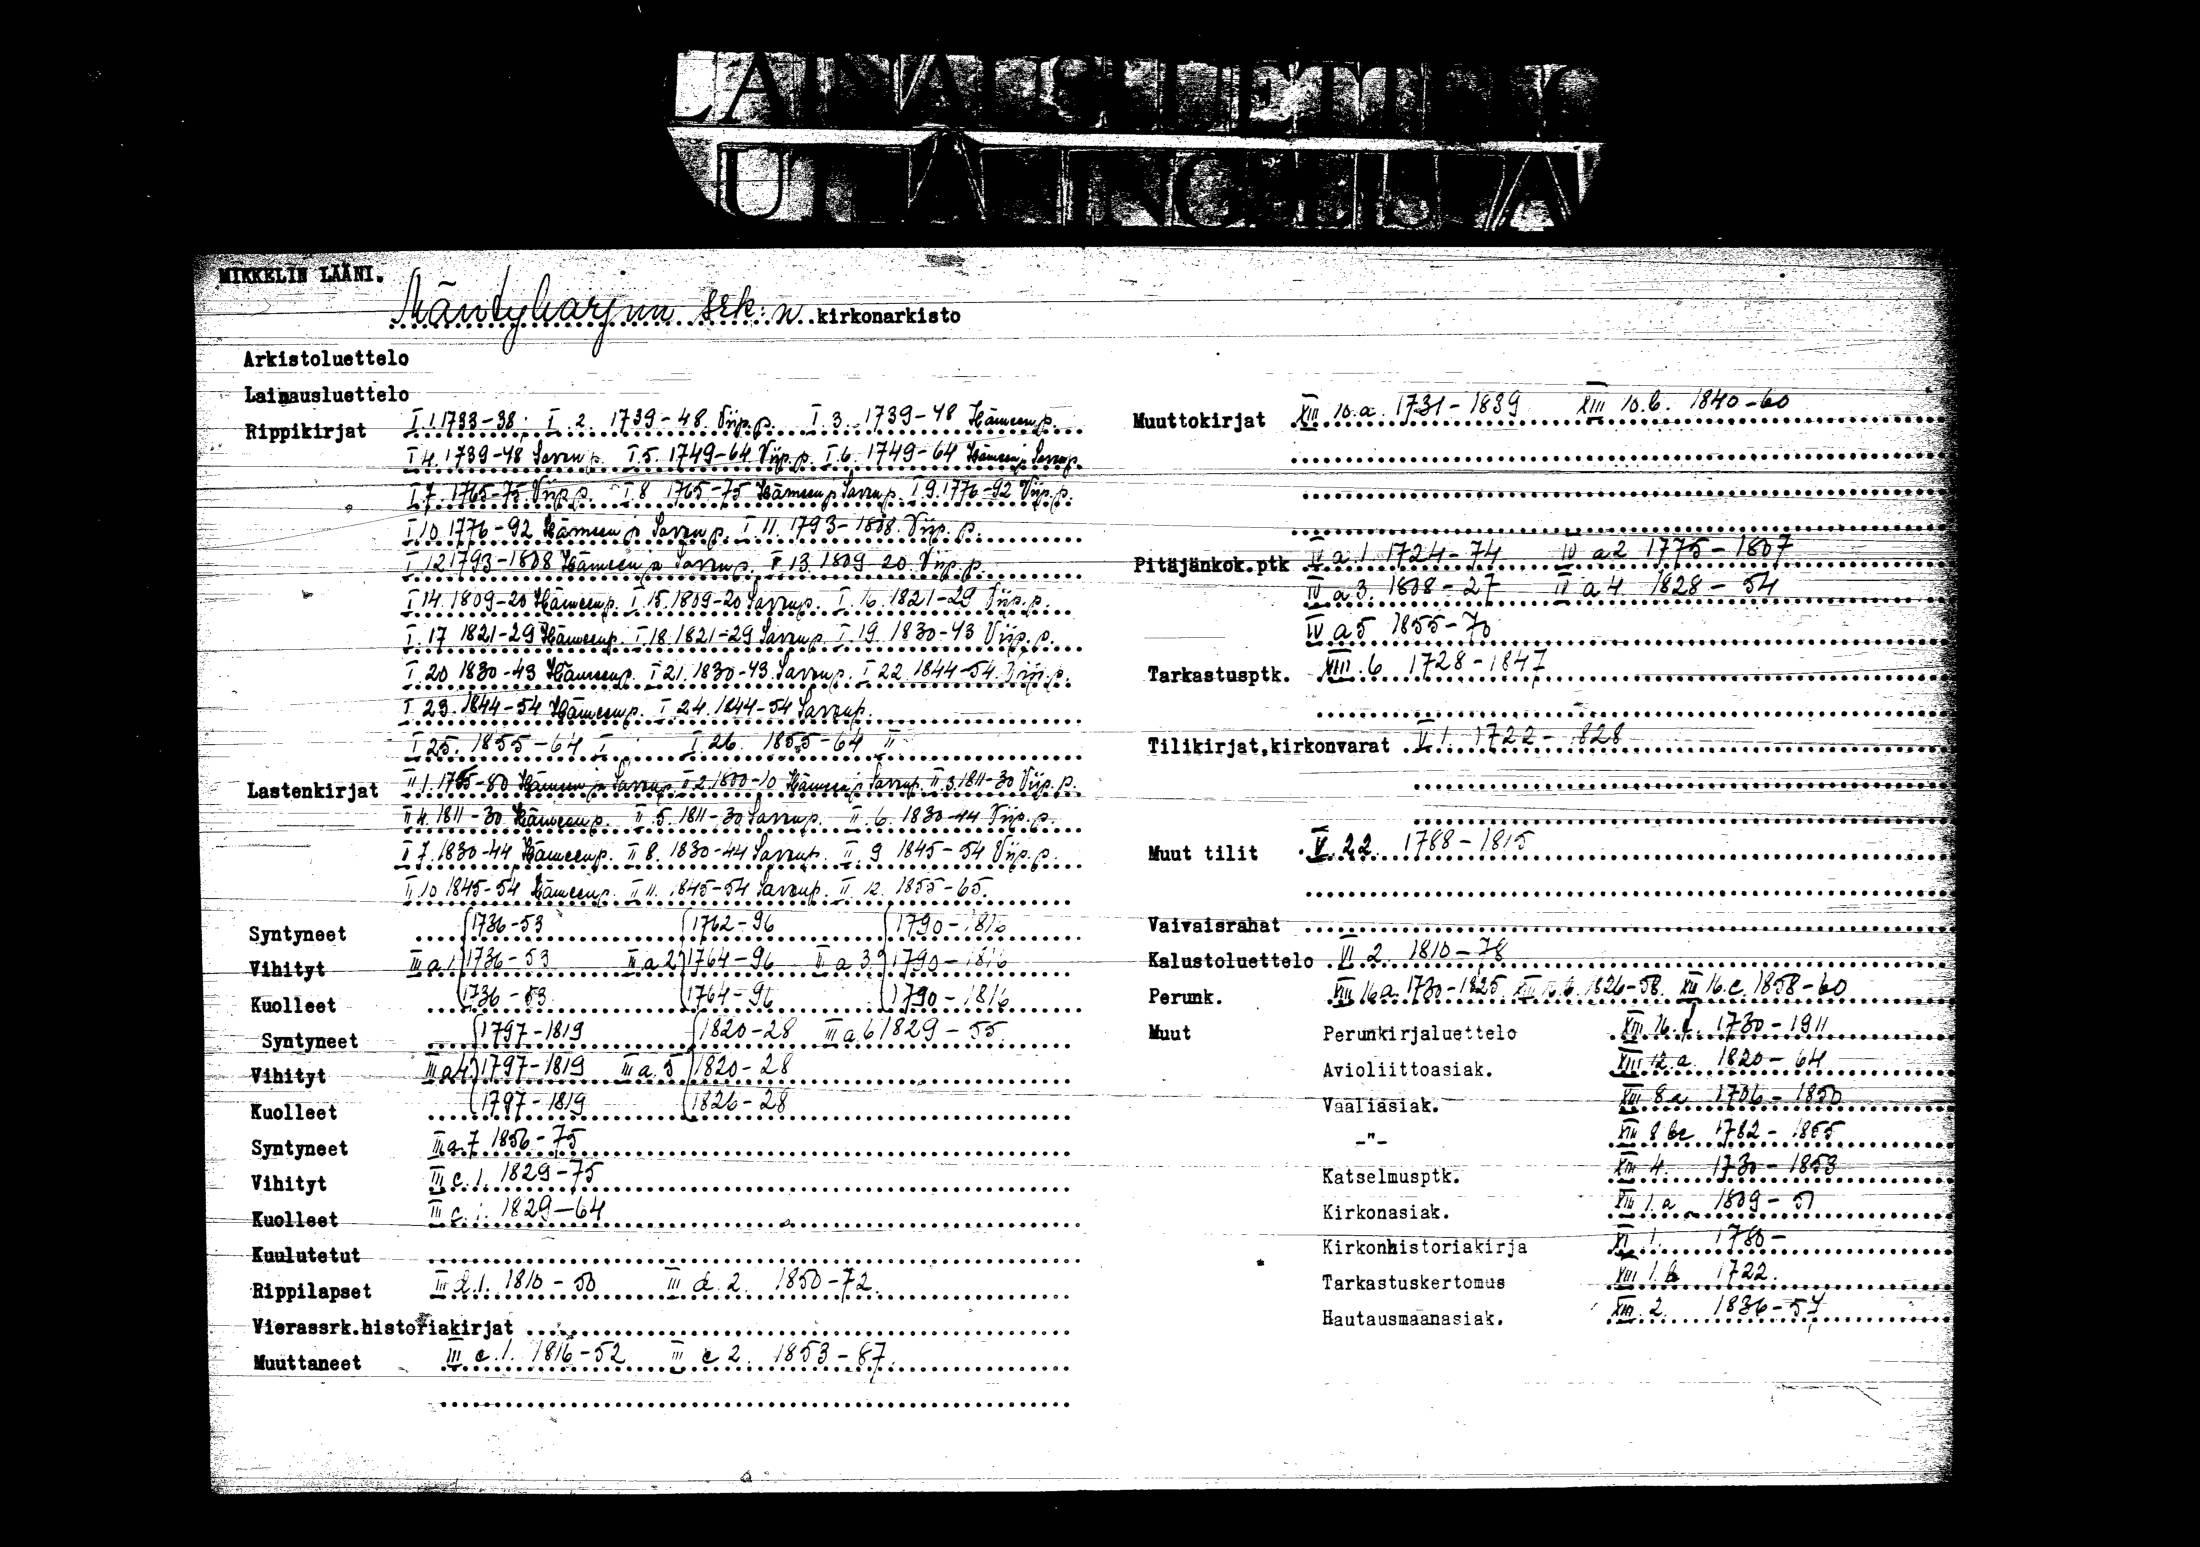 LAINAUSLUETTELO
MIKKELIN LÄÄNI.
Mäntyharjun srk:n kirkonarkisto
Arkistoluettelo
Lainausluettelo
Rippikirjat I.1.1733-38; I.2. 1739-48. Viip.p. I.3. 1739-48 Hämeenp.
I 4. 1739-48 Savonp. I.5. 1749-64 Viip.p. I.6. 1749-64 Hämeen ja Savonp.
I.7. 1765-75. Viip.p. I 8 1765-75 Hämeen ja Savonp. I 9. 1776-92 Viip.p.
I.10 1776-92 Hämeen ja Savonp. I 11. 1793-1808. Viip. p.
I 12 1793-1808 Hämeen ja Savonp. I 13. 1809-20 Viip.p.
I 14. 1809-20 Hämeenp. I.15. 1809-20 Savonp. I. 16. 1821-29 Viip.p.
I. 17 1821-29 Hämeenp. I 18. 1821-29 Savonp. I 19. 1830-43 Viip.p.
I 20 1830-43 Hämeenp. I 21. 1830-43. Savonp. I 22. 1844-54. Viip.p.
I 23. 1844-54 Hämeenp. I 24. 1844-54 Savonp.
I 25. 1855-64 I I 26. 1855-64 II
Lastenkirjat II 1. 1765-80 Hämeen ja Savonp. II 2. 1800-10 Hämeen ja Savonp. II 3. 1811-30 Viip.p.
II 4. 1811-30 Hämeenp. II 5. 1811-30 Savonp. II. 6. 1830-44 Viip.p.
I 7. 1830-44 Hämeenp. II 8. 1830-44 Savonp. II. 9 1845-54 Viip.p.
II 10 1845-54 Hämeenp. II 11. 1845-54 Savonp. II 12. 1855-65.
Syntyneet 1736-53 1762-96 1790-1816
Vihityt III a.1. 1736-53 III a 2 1764-96 III a 3. 1790-1816
Kuolleet 1736-53 1764-96 1790-1816
Syntyneet 1797-1819 1820-28 III a 6 1829-55
Vihityt III a 4 1797-1819 III a.5 1820-28
Kuolleet 1797-1819 1826-28
Syntyneet III a.7 1856-75
Vihityt III c.1. 1829-75
Kuolleet III c.1. 1829-64
Kuulutetut
Rippilapset III d.1. 1810-50 III d.2. 1850-72.
Vierassrk.historiakirjat
Muuttaneet III e.1. 1816-52 III e 2. 1853-87.
Muuttokirjat XIII 10.a. 1731-1839 XIII 10.b. 1840-60
Pitäjänkok.ptk IV a 1. 1724-74 IV a 2 1775-1807
IV a 3. 1808-27 IV a 4 1828-54
IV a 5 1855-70
Tarkastusptk. XIII.6. 1728-1847
Tilikirjat,kirkonvarat V 1. 1722-1828
Muut tilit V. 22. 1788-1815
Vaivaisrahat
Kalustoluettelo VI 2. 1810-78
Perunk. XIII 16a. 1730-1825. XIII 16.b. 1826-58. XIII 16.c. 1858-60
Muut Perunkirjaluettelo XIII 16. 1730-1911
Avioliittoasiak. XIII 12.a. 1820-64
Vaaliasiak. XIII 8 a 1706-1850
-"- XIII 8 bc 1782-1855
Katselmusptk. XIII 4. 1730-1853
Kirkonasiak. XIII 1.a 1809-51
Kirkonhistoriakirja XI 1. 1760-
Tarkastuskertomus XIII 1.b 1722.
Hautausmaanasiak. XIII.2. 1836-57